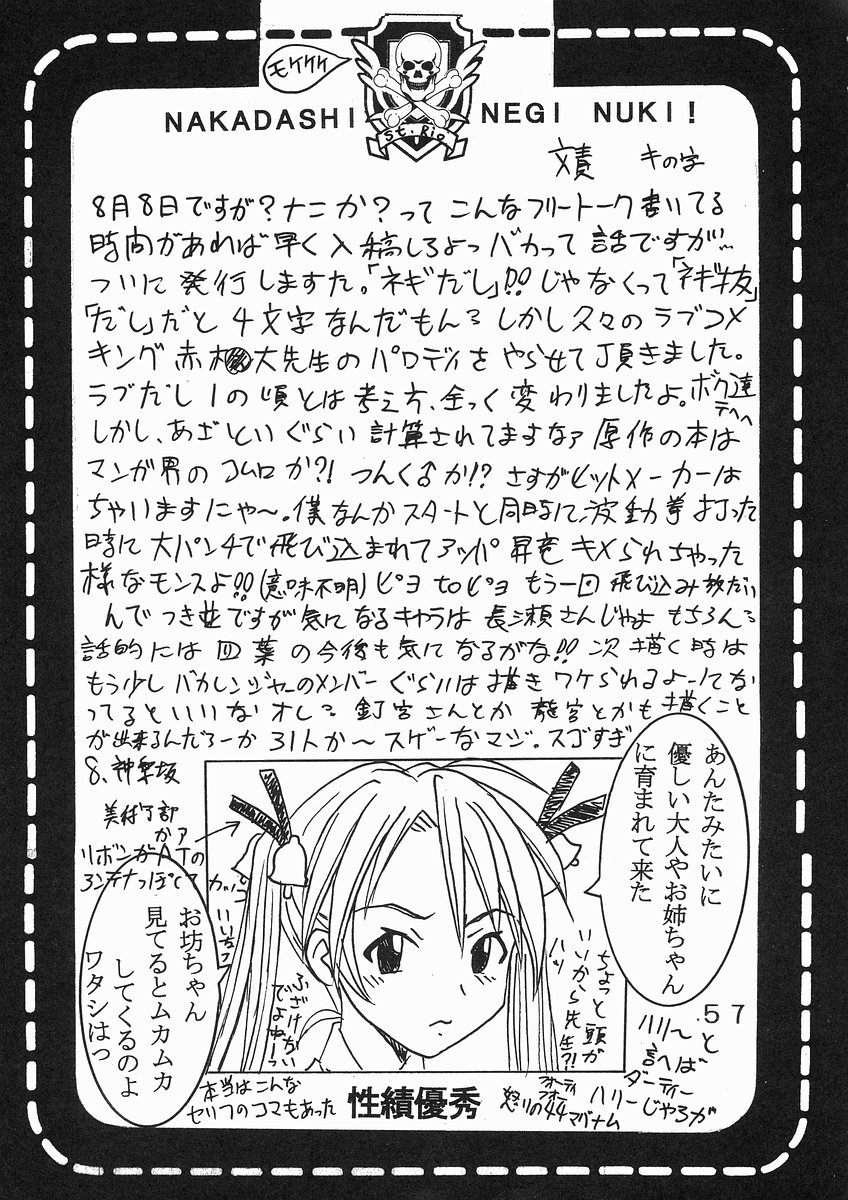 モケケケ
NAKADASHI NEGI NUKI!
St. Rio
文責 キの字
8月8日ですが?ナニか?って こんなフリートーク書いてる
時間があれば早く入稿しろよっバカって話ですが…
ついに発行しますた。「ネギだし」!!じゃなくって「ネギ抜」
「だし」だと4文字なんだもん しかし久々のラブコメ
キング赤松大先生のパロディをやらせて頂きました。
ラブだし1の頃とは考え方、全っく変わりましたよ。ボク達
テヘヘ
しかし、あざといぐらい計算されてますなァ原作の本は
マンガ界のコムロか?!つんく♂か!?さすがヒットメーカーは
ちゃいますにゃ〜。僕なんかスタートと同時に波動拳打った
時に大パンチで飛び込まれてアッパ昇竜キメられちゃった
様なモンスよ!!(意味不明)ピヨtoピヨ もう一回飛び込み放だい
んでつき並ですが気になるキャラは長瀬さんじゃよ もちろん
話的には四葉の今後も気になるがな!!次描く時は
もう少しバカレンジャーのメンバーぐらいは描きワケられるよーにな
ってるといいなオレ 釘宮さんとか龍宮とかも描くこと
が出来るんだろーか31人か〜スゲーなマジ。スゴすぎ
8、神楽坂
美術部
かァ
リボンがATの
アンテナっぽくて
カッコいいっ
あんたみたいに
優しい大人やお姉ちゃん
に育まれて来た
お坊ちゃん
見てるとムカムカ
してくるのよ
ワタシはっ
ちょっと頭が
いいから先生?!
ハッ
ふざけない
でよねーっ
本当はこんな
セリフのコマもあった
性績優秀
.57
ハリーと
言へば
ダーティー
ハリーじゃろが
怒りの44マグナム
フォーティ
フォー